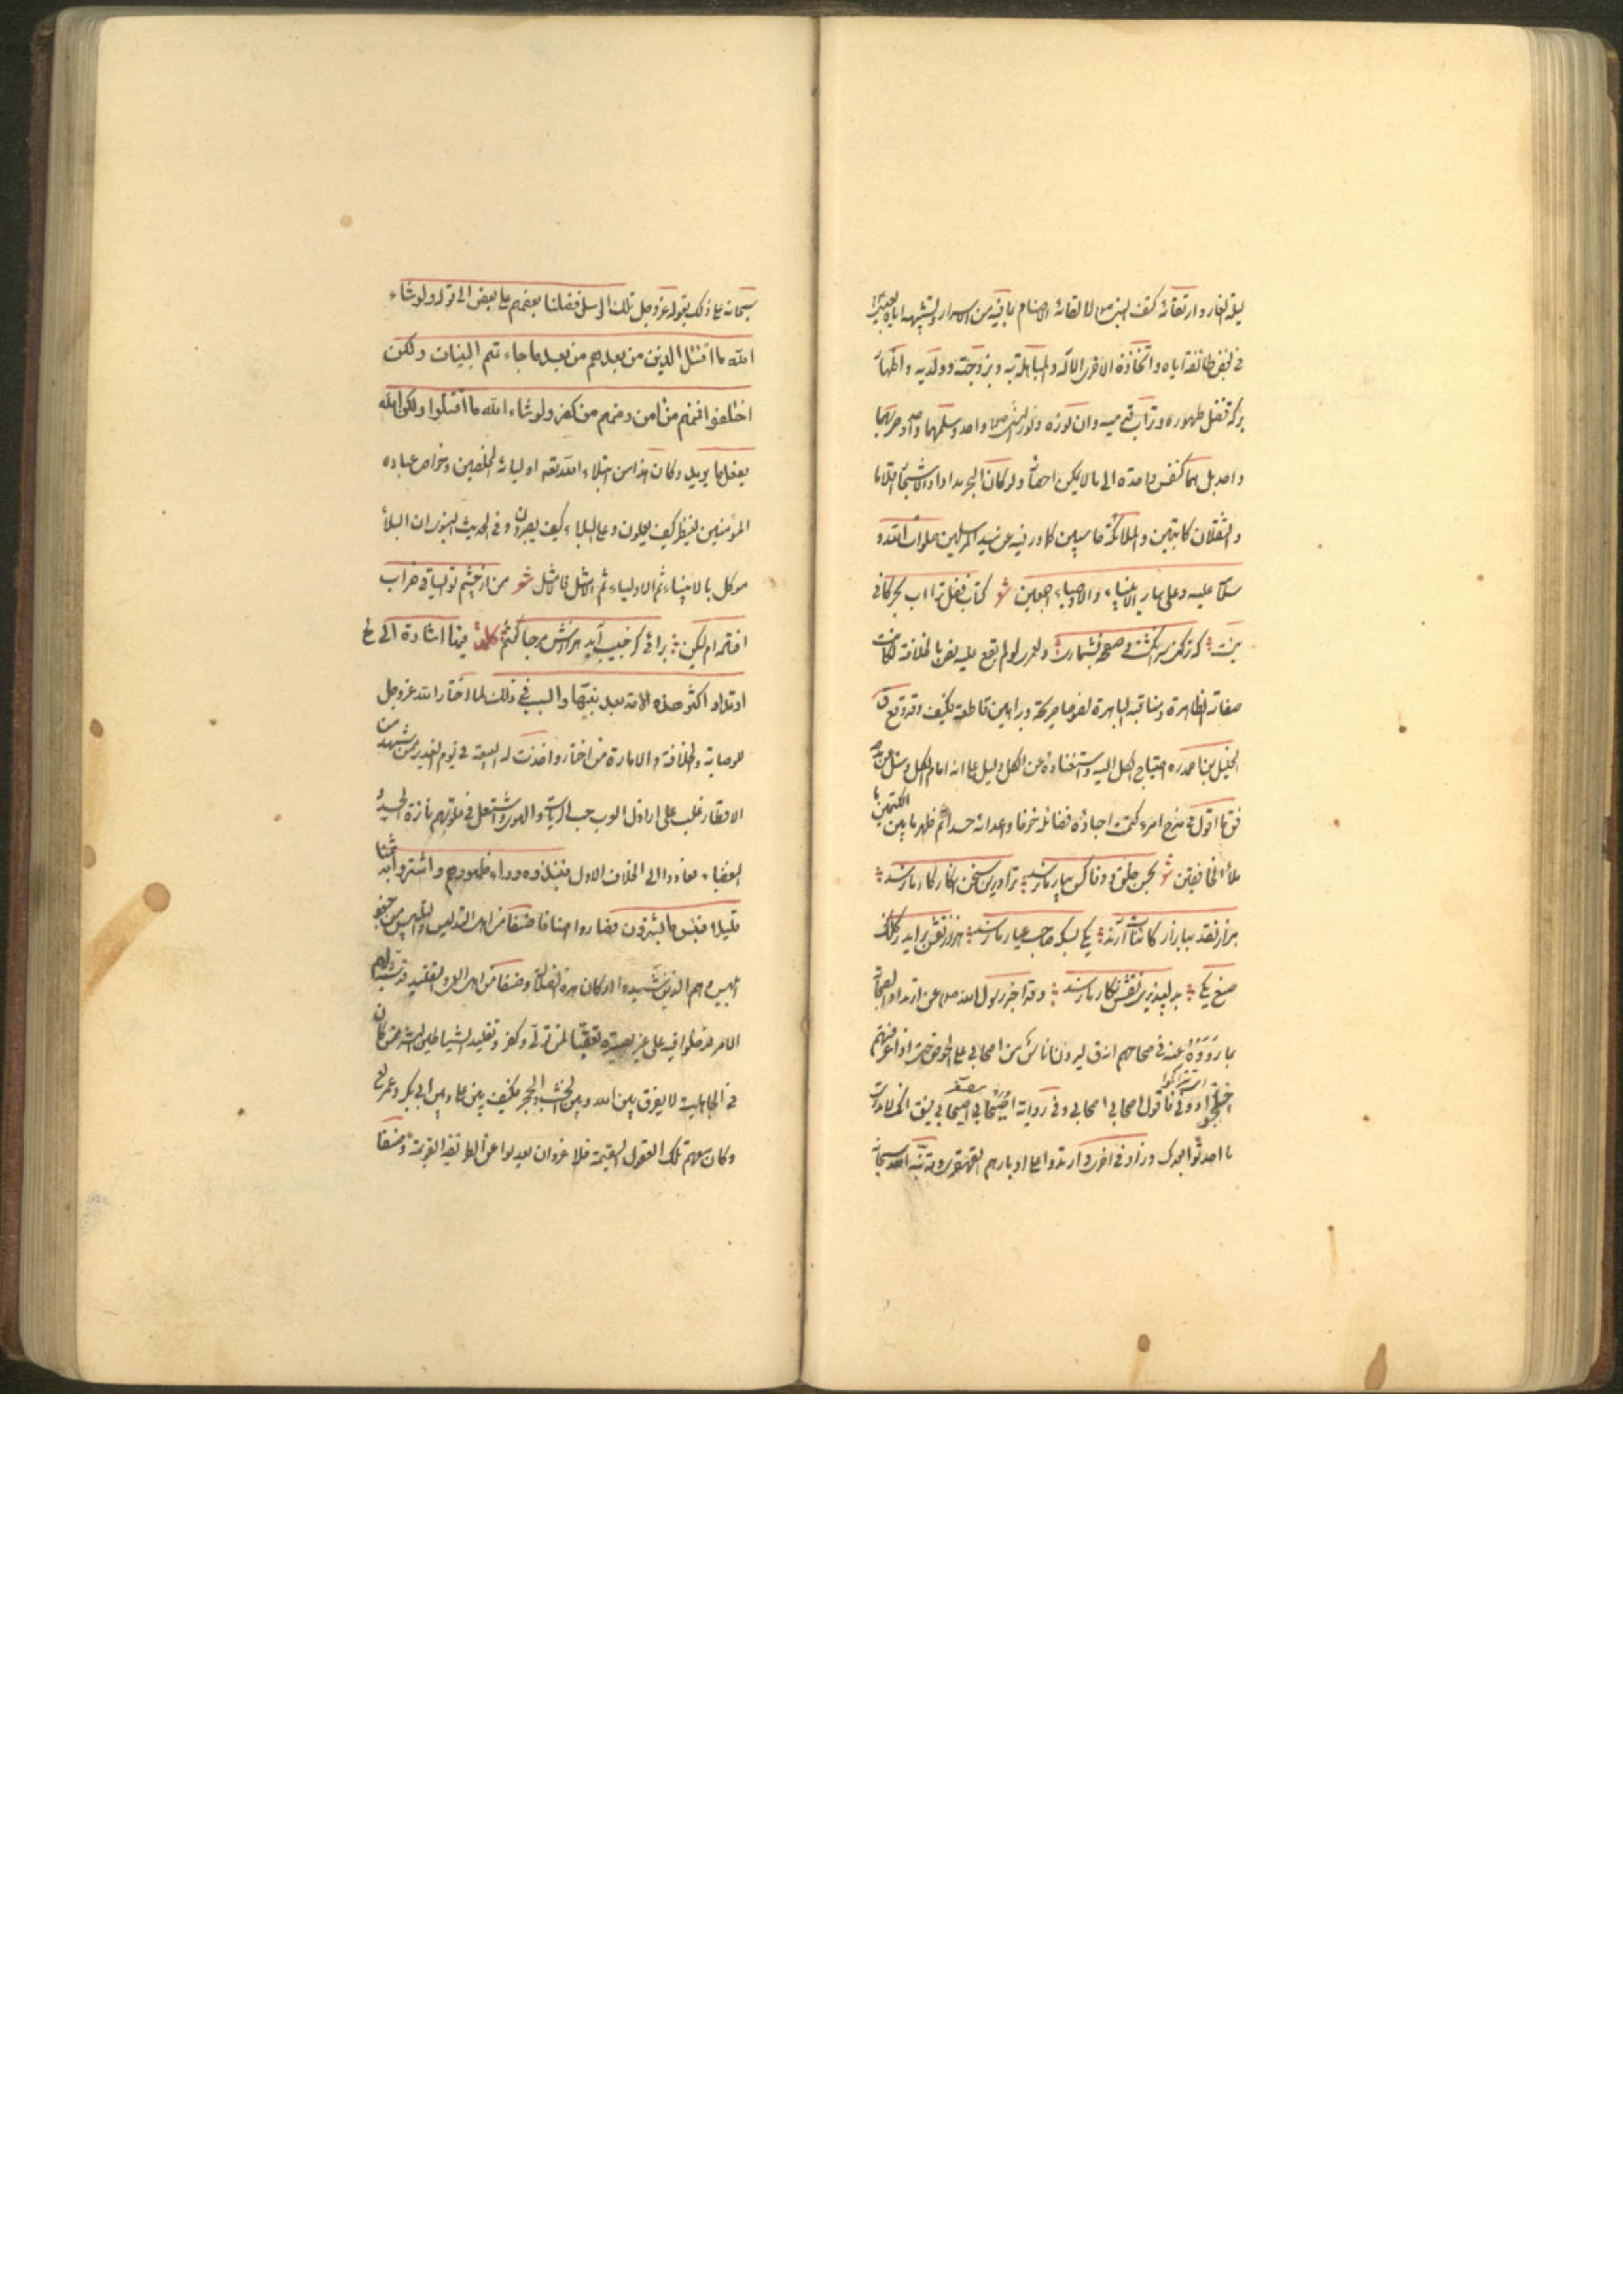 ليلة الغار وارتقائه كتف النبي ص لالقائه الاصنام بما فيه من الاسرار وتشبيهه اياه بعيسى
في بغض طائفة اياه واتخاذه الاخرى الها له والمباهلة به وبزوجته وولديه واظهار
بركة فضل طهوره وتراب قدميه وان نوره ونور النبي ص واحد وسلمهما وحربهما
واحد بل هما كنفس واحدة الى ما لا يمكن احصاؤه ولو كان البحر مدادا والاشجار اقلاما
والثقلان كاتبين والملائكة حاسبين كما ورد فيه عن سيد المرسلين صلوات الله و
سلامه عليه وعلى سائر الانبياء والاوصياء اجمعين شعر كتاب فضل ترا آب بحر كافي
نيست که تر کنی سر انگشت و صفحه بشماری ولعمري لو لم يقع عليه نص بالخلافة لكانت
صفاته الظاهرة ومناقبه الباهرة نصوصا صريحة وبراهين قاطعة فكيف وقد وقع قال
الخليل بن احمد ره احتياج الكل اليه واستغناؤه عن الكل دليل على انه امام الكل وسئل عن مدحه
فق ما اقول في مدح امرء كتمت احباؤه فضائله خوفا واعداؤه حسدا ثم ظهر ما بين الكتمين ما
ملأ الخافقين شعر بحسن خلق و وفا کس بيار ما نرسد ترا درين سخن انکار کار ما نرسد
هزار نقد ببازار کائنات آرند يکی بسکه صاحب عيار ما نرسد هزار نقش برايد ز کلک
صنع يکی بدلپذيری نقش نگار ما نرسد وقد اخبر رسول الله ص عن ارتداد الصحابة
بما رووه عنه في صحاحهم انه ق ليردن ناس من اصحابي علي الحوض حتى اذا عرفتهم
اختلجوا دوني فاقول اصحابي اصحابي وفي رواية اصيحابي اصيحابي فيق انك لا تدري
ما احدثوا بعدك وزاد في اخرى ارتدوا على ادبارهم القهقرى وقد نبه الله سبحانه
سبحانه على ذلك بقوله عز وجل تلك الرسل فضلنا بعضهم على بعض الى قوله ولو شاء
الله ما اقتتل الذين من بعدهم من بعد ما جاءتهم البينات ولكن
اختلفوا فمنهم من امن ومنهم من كفر ولو شاء الله ما اقتتلوا ولكن الله
يفعل ما يريد وكان هذا من ابتلاء الله تعه اوليائه المخلصين وخواص عباده
المؤمنين لينظر كيف يعملون وعلى البلايا كيف يصبرون وفي الحديث النبوي ان البلاء
موكل بالانبياء ثم الاولياء ثم الامثل فالامثل شعر من از چشم تو ای ساقی خراب
افتاده ام ليکن بلائی کز حبيب آيد هزارش مرحبا گفتم كلمة فيها اشارة الى
ارتداد اكثر هذه الامة بعد نبيها والسبب في ذلك لما اختار الله عز وجل
للوصاية والخلافة والامارة من اختار واخذت له البيعة في يوم الغدير ممن شهده من
الاقطار غلب على اراذل العرب حب الرياسة والهوى واشتعل في قلوبهم نائرة الحسد و
البغضاء فعادوا الى الخلاف الاول فنبذوه وراء ظهورهم واشتروا به ثمنا
قليلا فبئس ما يشترون فصاروا اصنافا صنفا من اهل التدليس والتلبيس من جنود
ابليس وهم الذين شيدوا اركان هذه الضلالة وصنفا من اهل العمى والتقليد قد شبه لهم
الامر فدخلوا فيه على غير بصيرة تعقبا لمن تولى وكفر وتقليد الشياطين البشر ممن كان
في الجاهلية لا يفرق بين الله وبين الخشب والحجر فكيف بين علي وبين ابي بكر وعمر
وكان معهم تلك العقول السقيمة فلا غرو ان يعدلوا عن الطريقة القويمة وصنفا